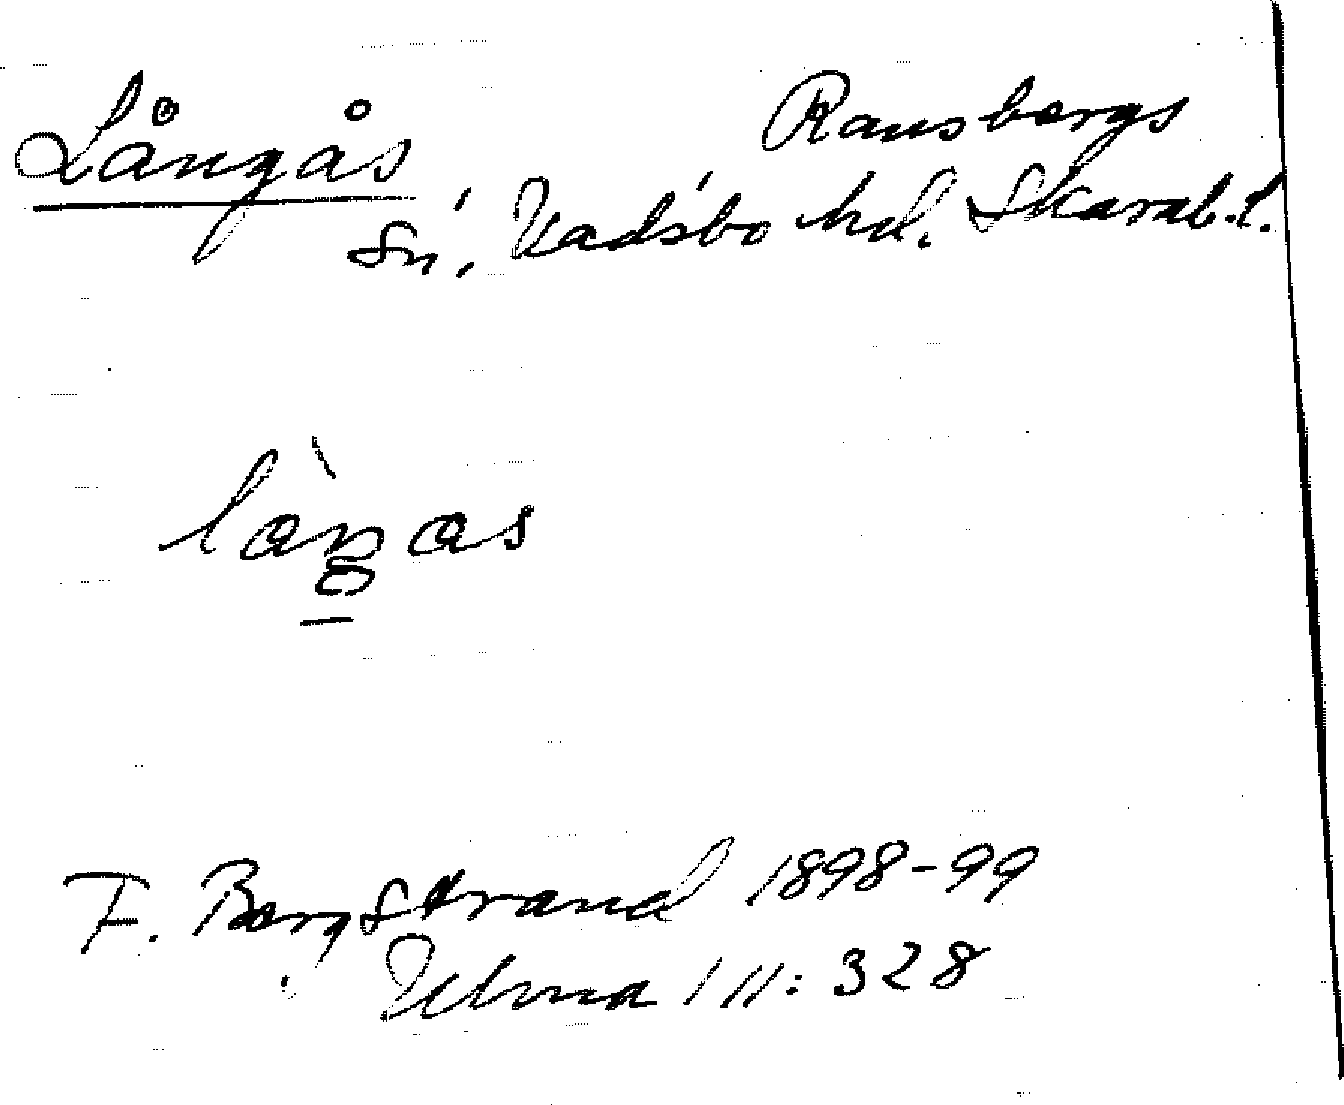 Långås
Ransbergs
Sn, Vadsbo hd. Skarab. l.
F. Bergstrand 1898-99
III: 328